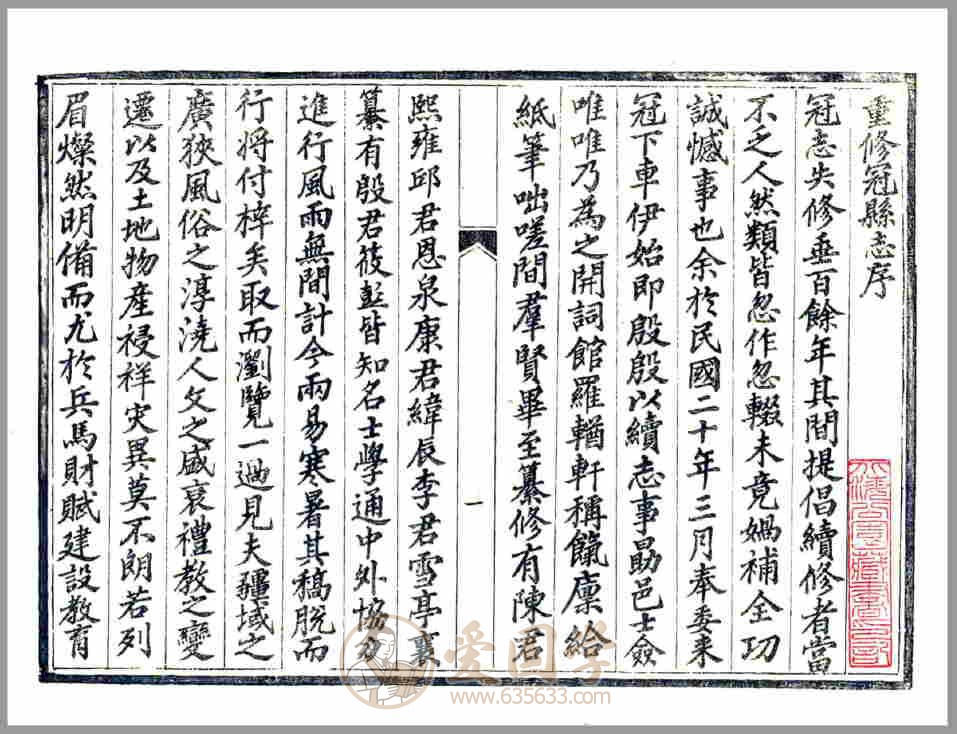 重修冠縣志序
冠志失修垂百餘年其間提倡續修者當
不乏人然類皆忽作忽輟未竟媧補全功
誠憾事也余於民國二十年三月奉委來
冠下車伊始即殷殷以續志事勗邑士僉
唯唯乃為之開詞館羅輶軒稱餼廩給
紙筆咄嗟間羣賢畢至纂修有陳君
一
熙雍邱君恩泉康君緯辰李君雪亭襄
纂有殷君筱彭皆知名士學通中外協力
進行風雨無間計今兩易寒暑其稿脫而
行將付梓矣取而瀏覽一過見夫疆域之
廣狹風俗之淳澆人文之盛衰禮教之變
遷以及土地物產祲祥灾異莫不朗若列
眉燦然明備而尤於兵馬財賦建設教育
爱国学
www.635633.com